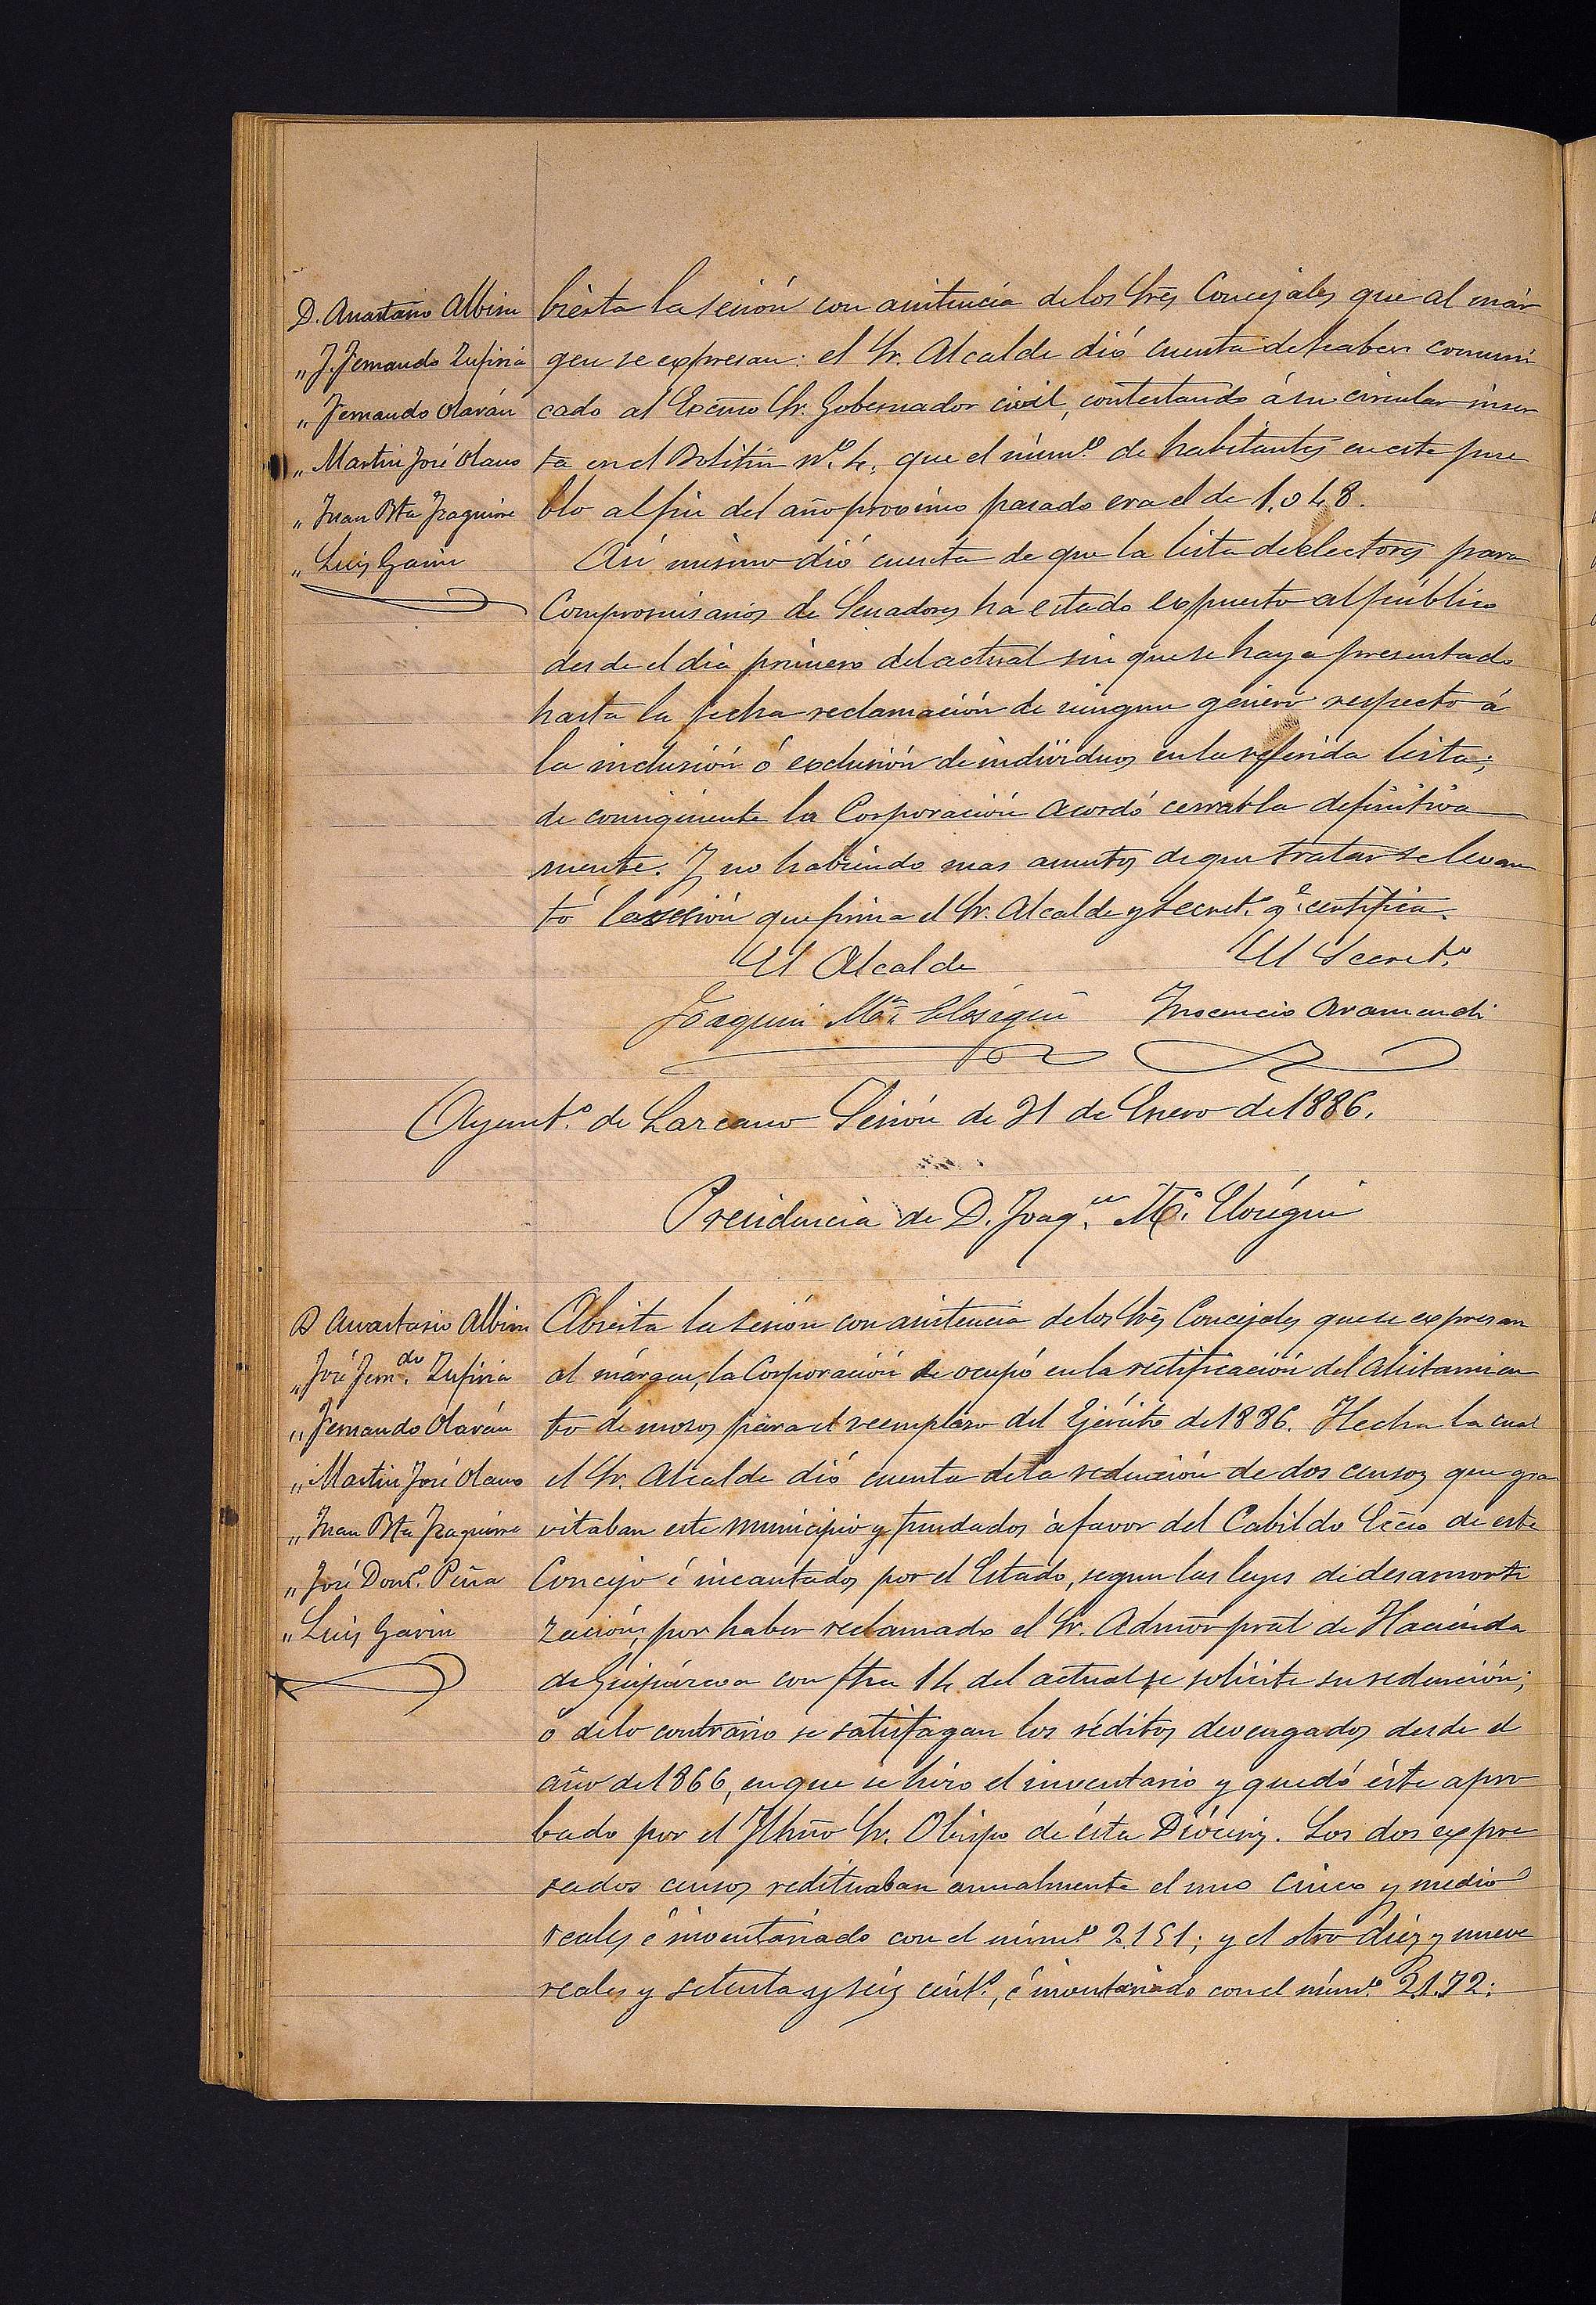 D. Anastasio Albisu
„ J. Fernando Zufiria
„ Fernando Olarán
„ Martin José Olano
„ Juan Bta Izaguirre
„ Luis Garin
bierta la sesión con asistencia de los Sres Concejales que al már
gen se expresan: el Sr. Alcalde dió cuenta de haber comuni
cado al Excmo Sr. Gobernador civil, contestando á su circular inser
ta en el Boletin nº. 4, que el númº de habitantes en este pue
blo al fin del año proximo pasado era el de 1.048.
Asi mismo dió cuenta de que la lista de electores para
Compromisarios de Senadores ha estado expuesto al público
desde el dia primero del actual sin que se haya presentado
hasta la fecha reclamación de ningun género respecto á
la inclusión ó exclusión de individuos en la referida lista;
de consiguiente la Corporación acordó cerrarla definitiva
mente. Y no habiendo mas asuntos de que tratar se levan
tó la sesión que firma el Sr. Alcalde y Secretº. qe. certifica.
El Alcalde El Secretº.
Joaquin Mª. Elosegui Inocencio Aramendi
Ayuntº. de Lazcano Sesión de 31 de Enero de 1886.
Presidencia de D. Joaqn. Mª. Elósegui
D Anastasio Albisu
„ José Ferndo. Zufiria
„ Fernando Olarán
„ Martin José Olano
„ Juan Bta Izaguirre
„ José Domº. Peña
„ Luis Garin
Abierta la sesión con asistencia de los Sres Concejales que se expresan
al márgen, la Corporación se ocupó en la rectificación del Alistamien
to de mozos para el reemplazo del Ejército de 1886. Hecha la cual
el Sr. Alcalde dió cuenta de la redención de dos censos que gra
vitaban este municipio y fundados á favor del Cabildo Ecco de este
Concejo é incautados por el Estado, segun las leyes de desamorti
zación, por haber reclamado el Sr. Admor pral de Hacienda
de Guipúzcoa con fha 14 del actual se solicite su redención;
ó de lo contrario se satisfagan los réditos devengados desde el
año de 1866, en que se hizo el inventario y quedó éste apro
bado por el Ilmo Sr. Obispo de ésta Diócesis. Los dos expre
sados censos redituaban anualmente el uno cinco y medio
reales é inventariado con el númº 2.151; y el otro diez y nueve
reales y setenta y seis céntº., é inventariado con el númº 2.172: